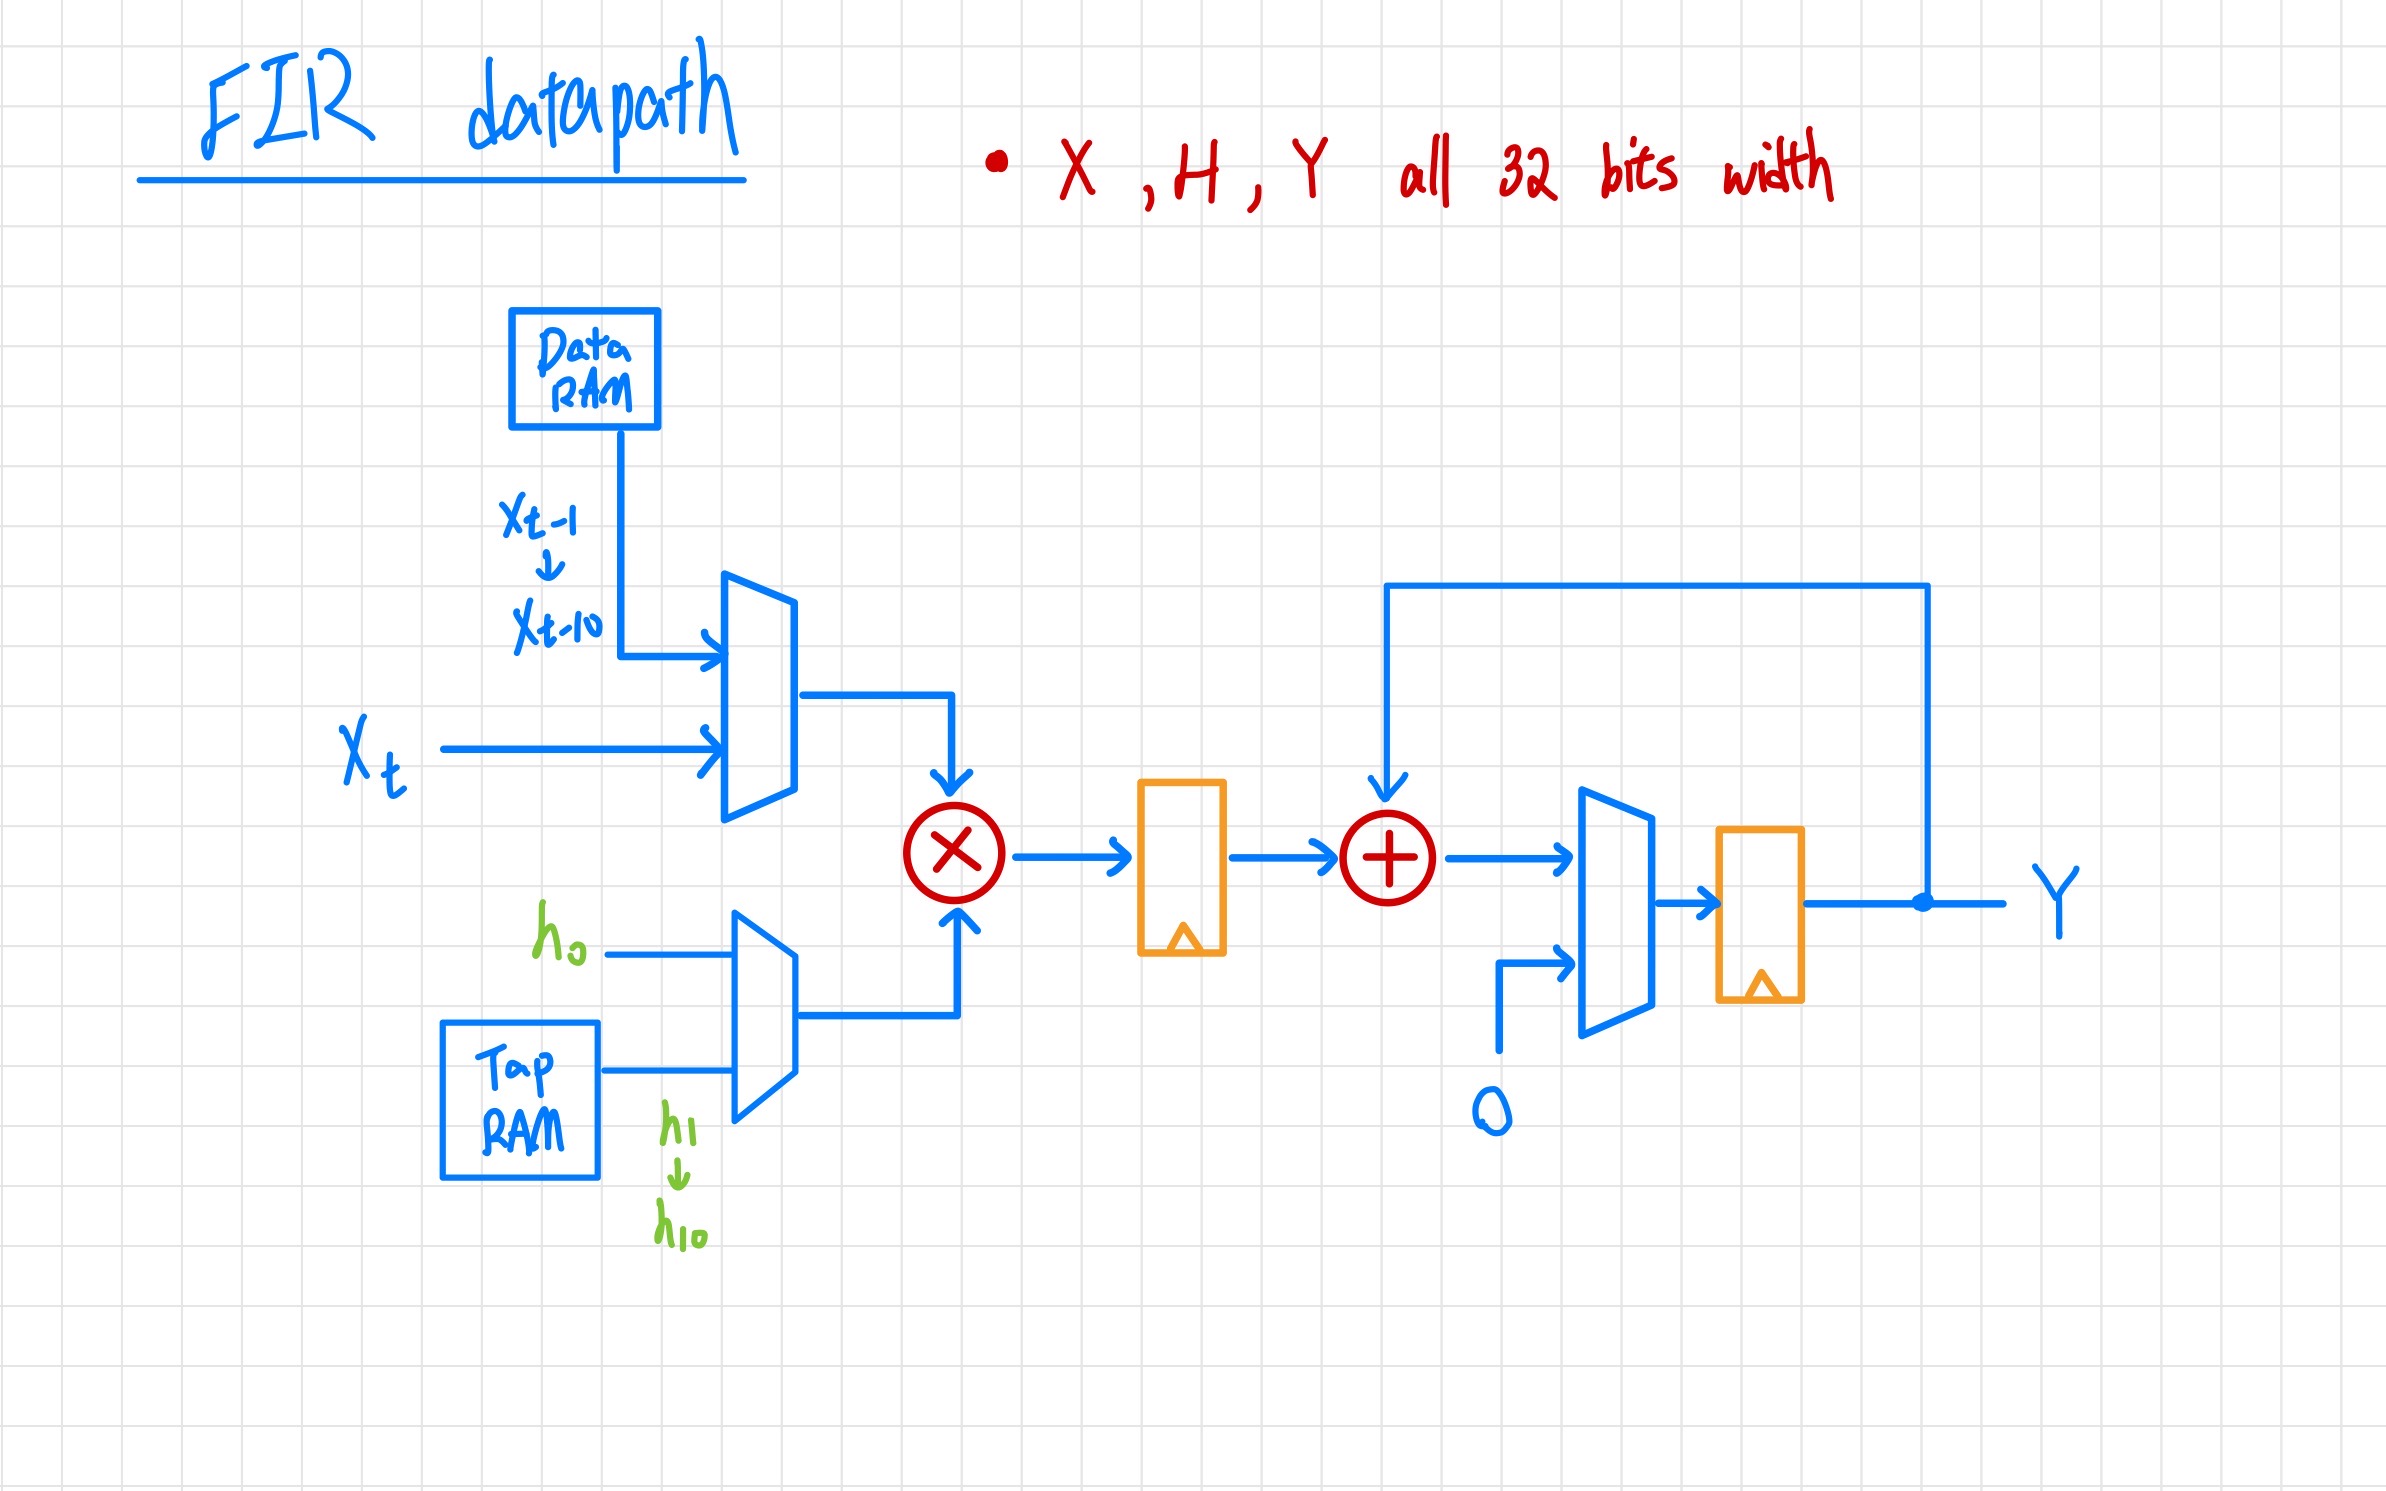 FIR datapath
• X, H, Y all 32 bits width
Data
RAM
Xt-1
↓
Xt-10
Xt
h0
Tap
RAM
h1
↓
h10
0
Y